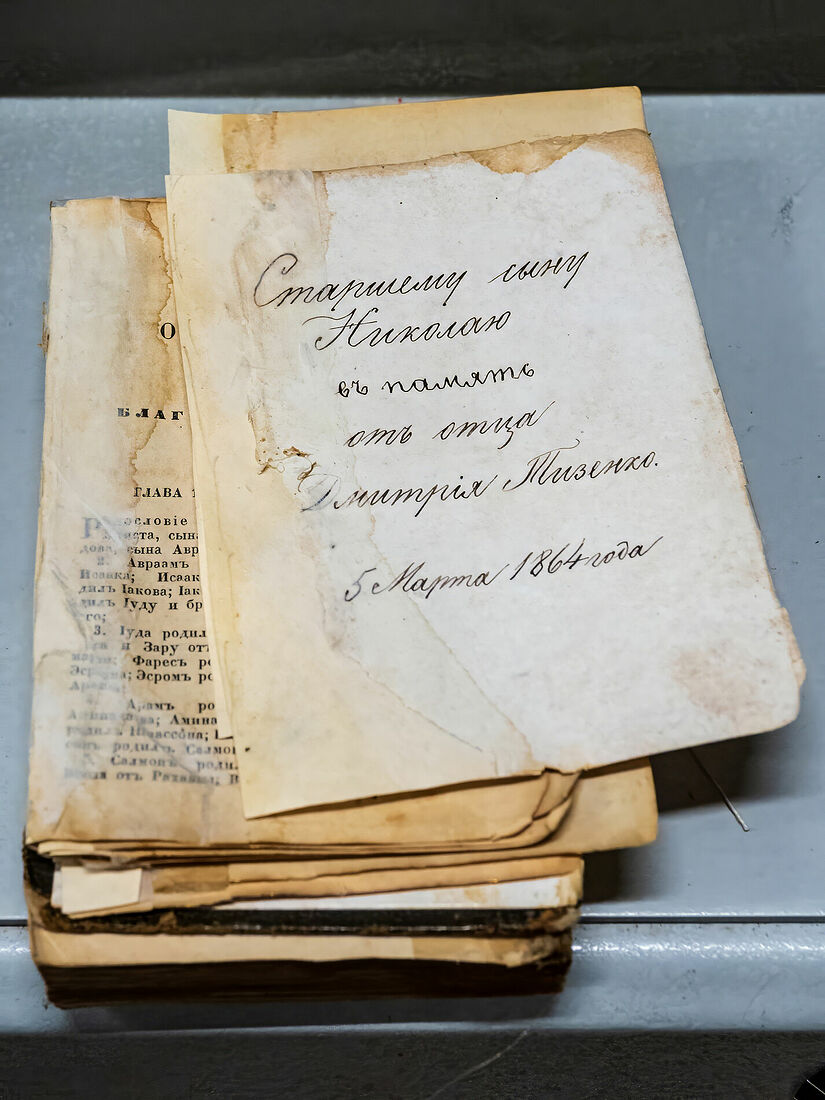 Старшему сыну
Николаю
въ память
отъ отца
Дмитрія Тизенко.
5 Марта 1864 года
О
БЛАГ
ГЛАВА 1
ословіе
иста, сына
дова, сына Авр
2. Авраамъ
Исаака; Исаак
дилъ Іакова; Іак
дилъ Іуду и бр
го;
3. Іуда родил
и Зару отъ
Фаресъ ро
Эсрома; Эсромъ ро
Арамъ ро
Аминадава; Амина
родилъ Наассона;
родилъ Салмон
Салмонъ родил
отъ Рахавы; В